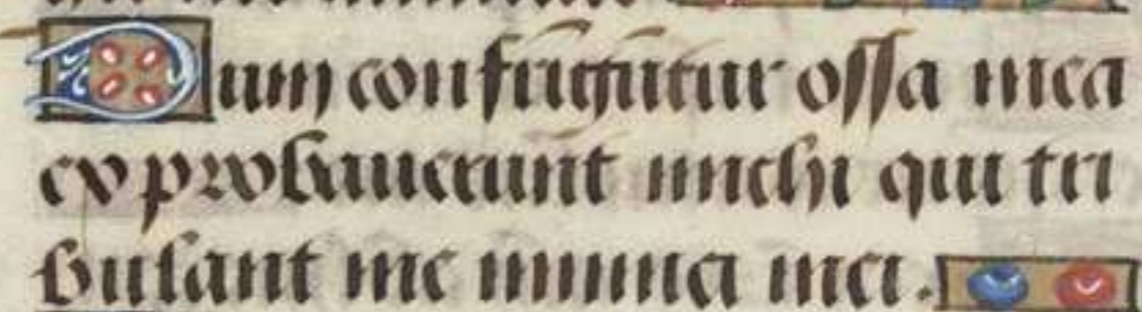 Dum confringuntur ossa mea
exprobauerunt michi qui tri
bulant me inimici mei.